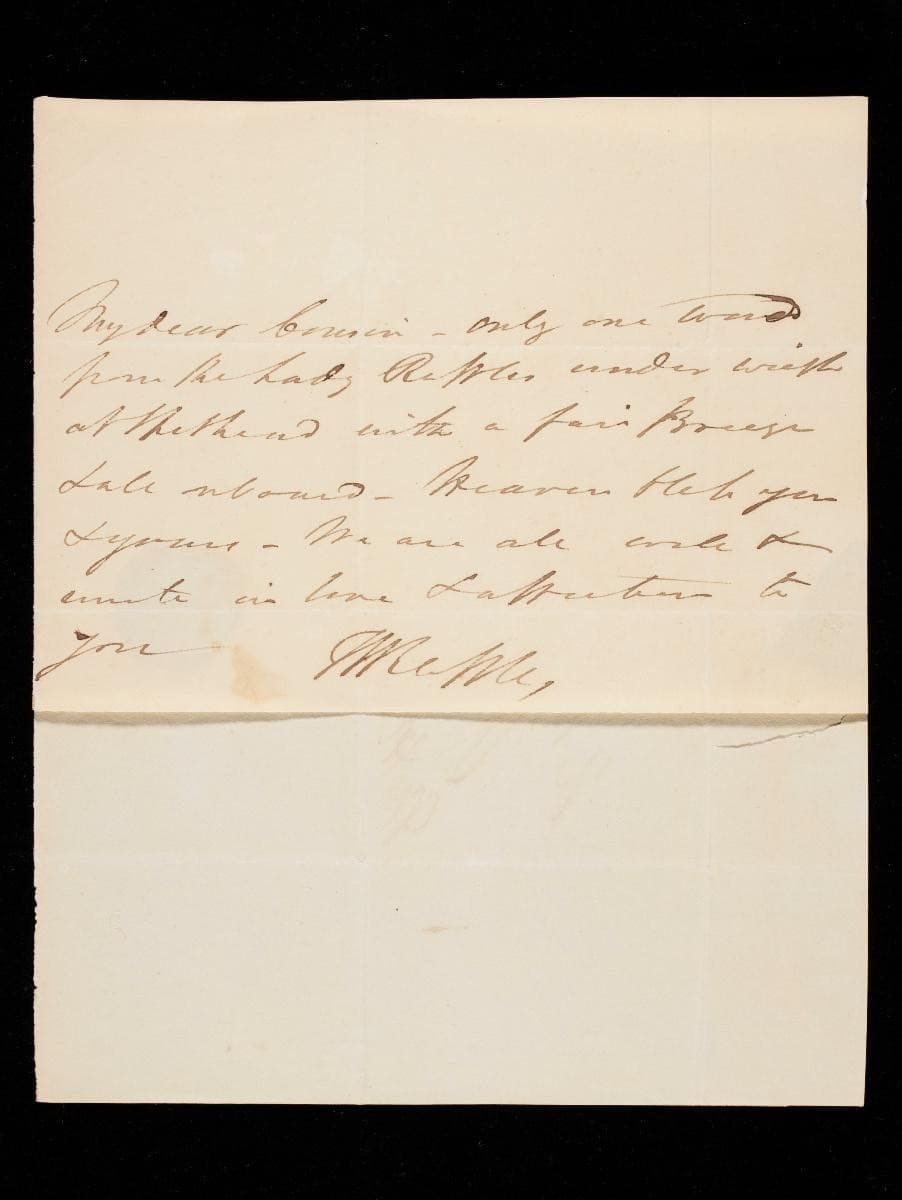 My dear Cousin - only one word
from the Lady Raffles under weigh
at Spithead with a fair Breeze
& all aboard - Heaven bless you
& yours - We are all well &
unite in love & affection to
you TSRaffles